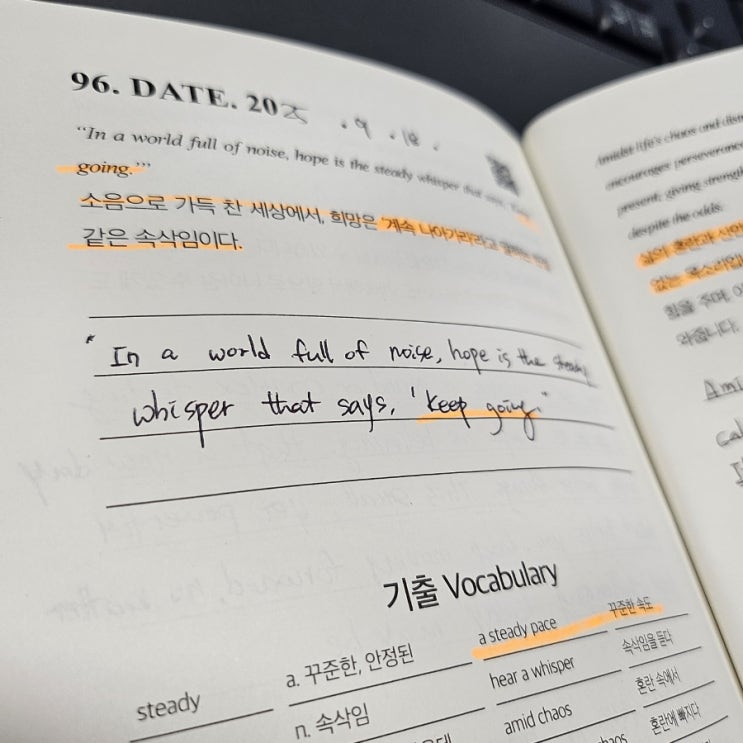 96. DATE. 2025 . 9 . 18 .
“In a world full of noise, hope is the steady whisper that says, ‘Keep
going.’”
소음으로 가득 찬 세상에서, 희망은 '계속 나아가라'라고 말하는
같은 속삭임이다.
* In a world full of noise, hope is the steady
whisper that says, 'keep going."
기출 Vocabulary
steady a. 꾸준한, 안정된 a steady pace 꾸준한 속도
n. 속삭임 hear a whisper 속삭임을 듣다
amid chaos 혼란 속에서
혼란에 빠지다
Amidst life's chaos and
encourages perseverance
present, giving strength
despite the odds.
삶의 혼란과
있는 목소리입니다
힘을 주며
Ami